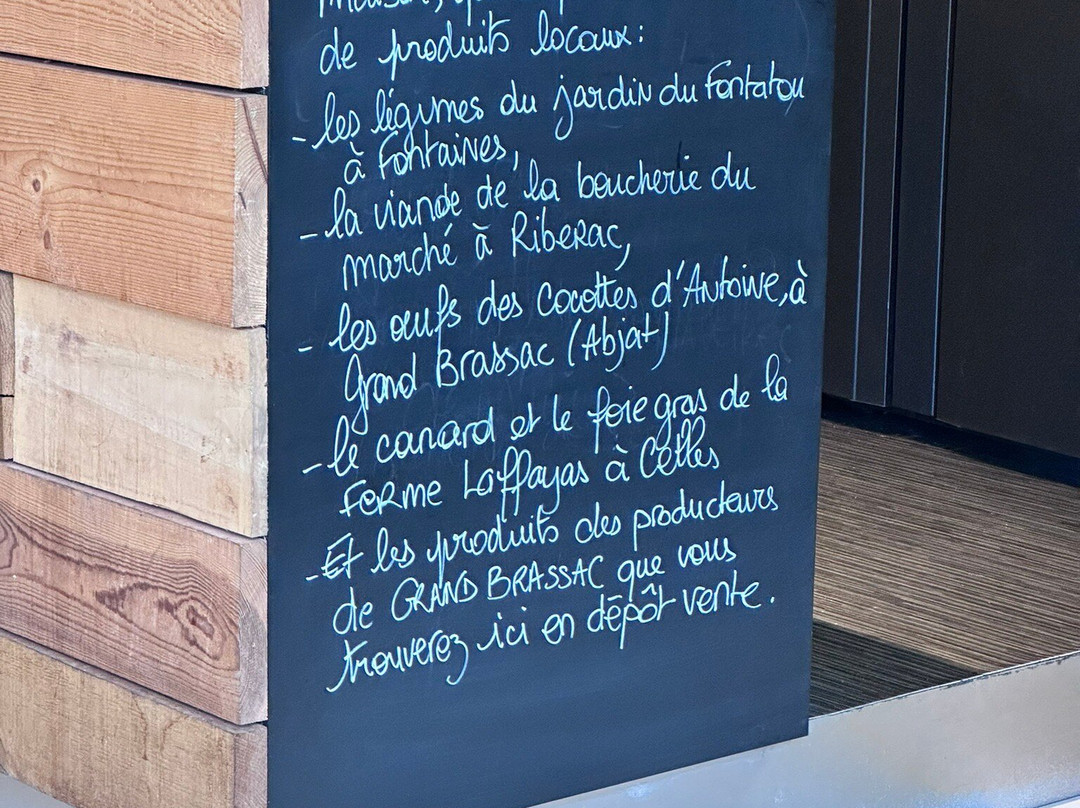 de produits locaux:
- les légumes du jardin du Fontatou
à Fontaines,
- la viande de la boucherie du
marché à Riberac,
- les œufs des Cocottes d'Antoine, à
Grand Brassac (Abjat)
- le canard et le foie gras de la
FERME Laffayas à Celles
- Et les produits des producteurs
de GRAND BRASSAC que vous
trouverez ici en dépôt vente.